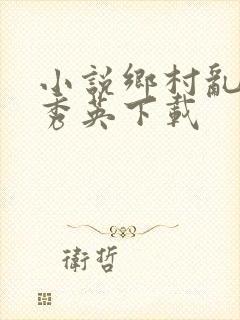 小説鄉村亂
秀英下載
衛哲